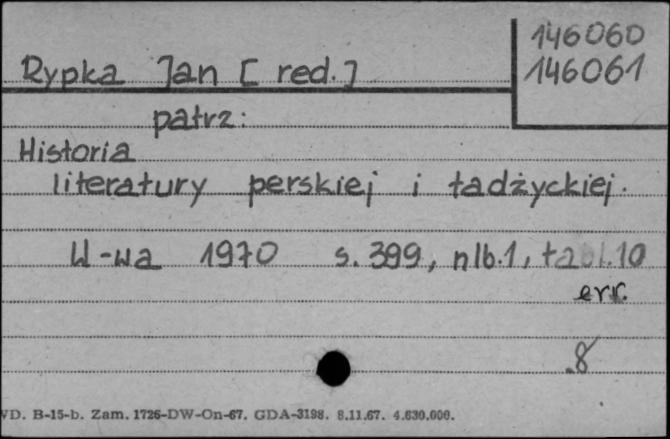 146060
Rypka Jan [ red. ]
146061
patrz:
Historia
literatury perskiej i tadżyckiej.
W-wa 1970 s. 399, nlb. 1, tabl. 10
err.
8
WD. B-15-b. Zam. 1726-DW-On-67. GDA-3198. 8.11.67. 4.630.000.